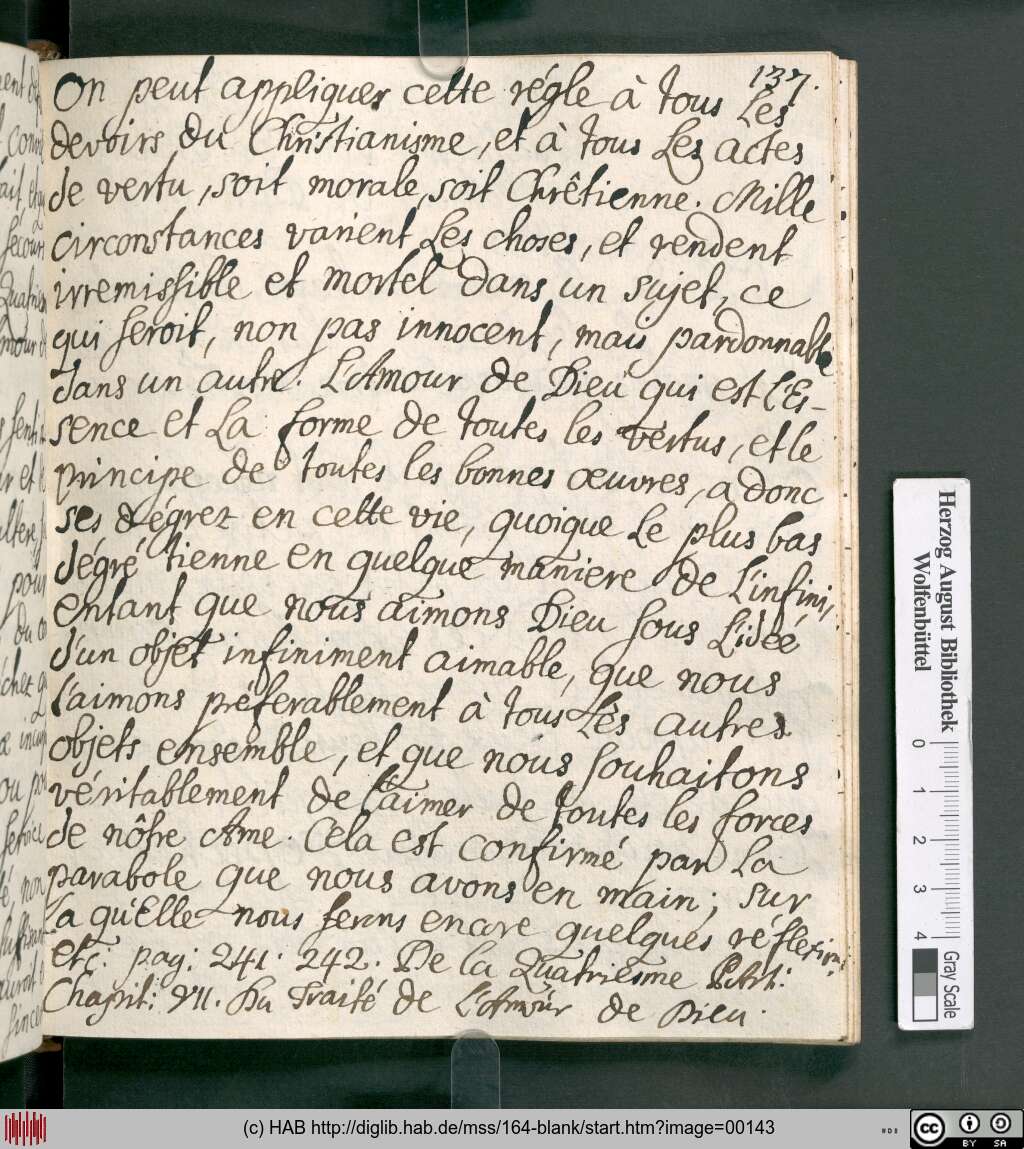 137.
On peut appliquer cette régle à tous Les
devoirs du Christianisme, et à tous Les actes
de vertu, soit morale, soit Chrêtienne. Mille
circonstances varient Les choses, et rendent
irremissible et mortel dans un sujet, ce
qui seroit, non pas innocent, mais pardonnable
dans un autre. L'Amour de Dieu qui est l'Es-
sence et La forme de toutes les vertus, et le
principe de toutes les bonnes œuvres, a donc
ses dégrez en cette vie, quoique Le plus bas
dégré tienne en quelque maniere de L'infini,
entant que nous aimons Dieu sous L'idée
d'un objet infiniment aimable, que nous
l'aimons préferablement à tous Les autres
objets ensemble, et que nous souhaitons
véritablement de l'aimer de toutes les forces
de nôtre Ame. Cela est confirmé par La
parabole que nous avons en main; sur
la qu'Elle nous ferons encore quelques réflexions
etc: pag: 241. 242. De la Quatriesme Part:
Chapit: VII. Du Traité de L'Amour de Dieu.
Herzog August Bibliothek
Wolfenbüttel
0 1 2 3 4
Gray Scale
(c) HAB http://diglib.hab.de/mss/164-blank/start.htm?image=00143
cc BY SA